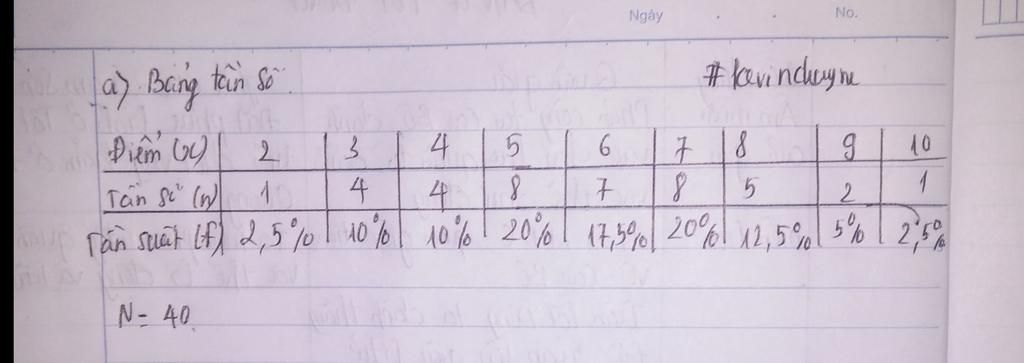 Ngày . . No.
a) Bảng tần số. #kevinchuyne
Điểm (x) 2 3 4 5 6 7 8 9 10
Tần số (n) 1 4 4 8 7 8 5 2 1
Tần suất (f) 2,5% 10% 10% 20% 17,5% 20% 12,5% 5% 2,5%
N = 40.